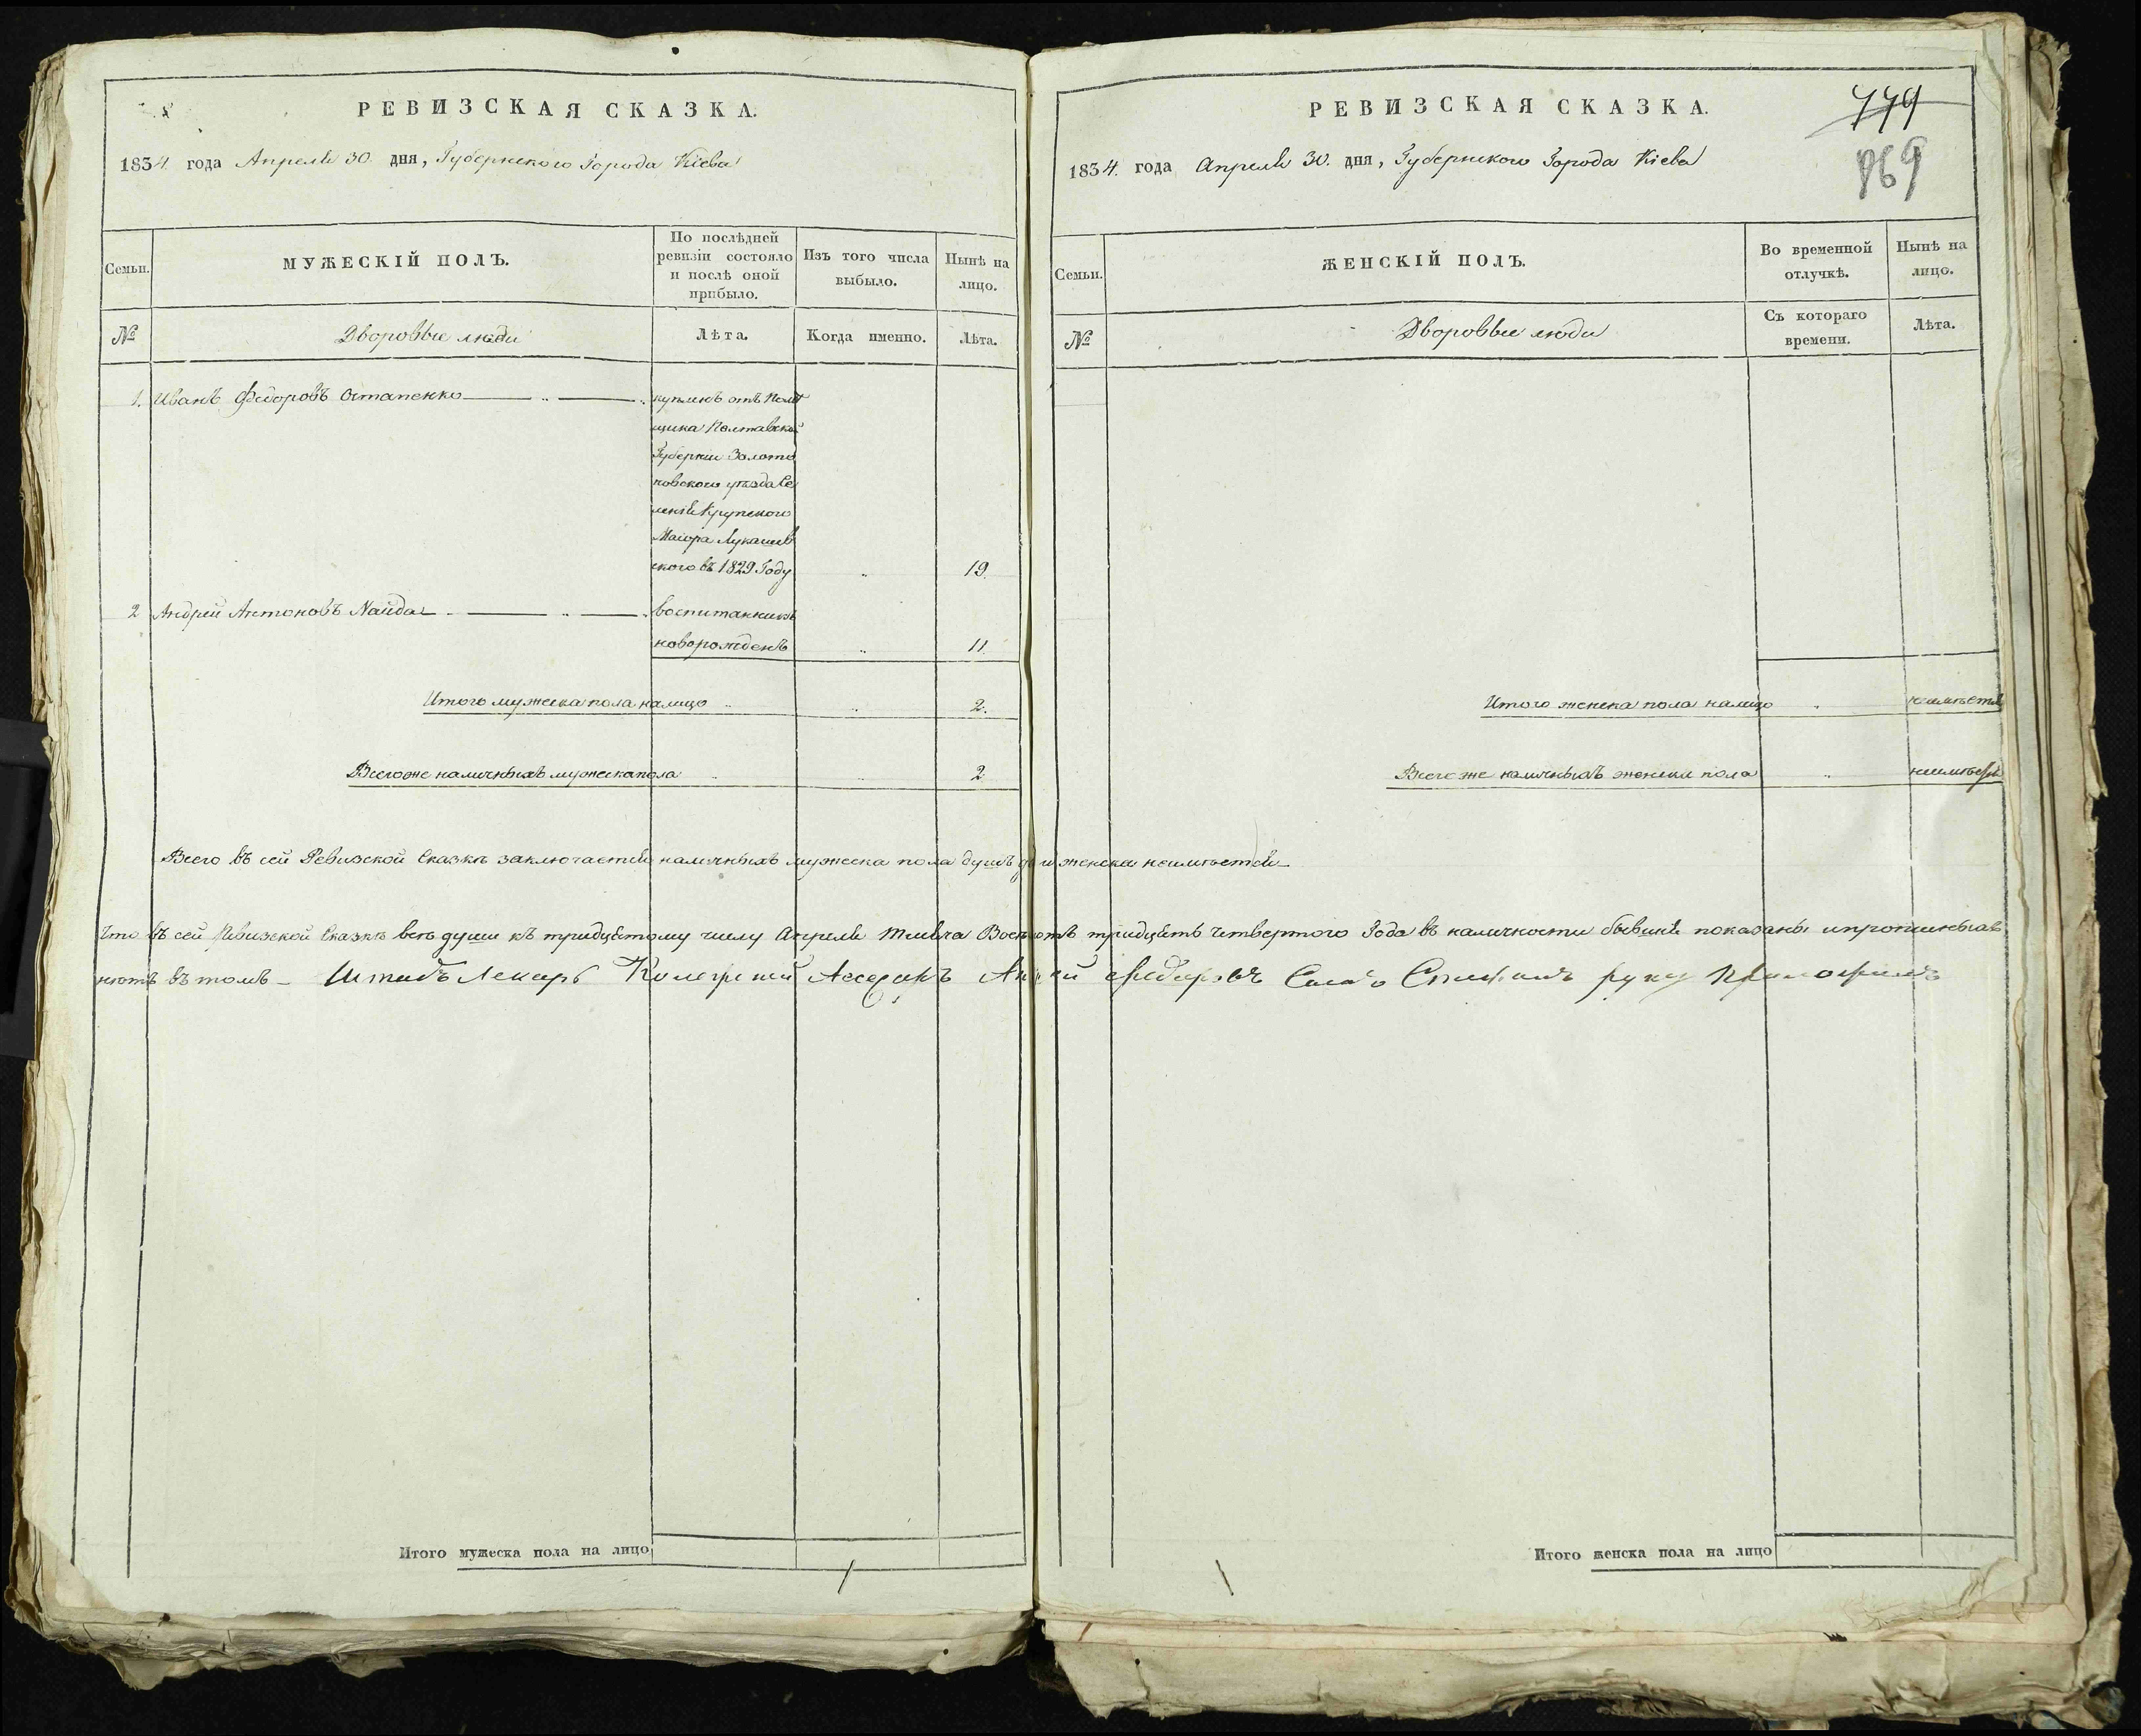 РЕВИЗСКАЯ СКАЗКА.
1834. года Апреля 30. дня, Губернского Города Кіева
Семьи.
МУЖЕСКІЙ ПОЛЪ.
По послѣдней ревизіи состояло и послѣ оной прибыло.
Изъ того числа выбыло.
Нынѣ на лицо.
№
Дворовые люди
Лѣта.
Когда именно.
Лѣта.
1. Иванъ Федоровъ Остапенко
купленъ отъ поме
щика Полтавской
Губернии Золото
ношского уезда Се
ленія Крупского
Маиора Лукашев
ского въ 1829 Году 19.
2 Андрей Антоновъ Найда
воспитанникъ
новорожденъ 11.
Итого мужеска пола налицо 2.
Всего же наличныхъ мужеска пола 2
Всего въ сей Ревизской Сказкѣ заключается наличныхъ мужеска пола душъ женска неимѣется
Что въ сей Ревизской Сказкѣ всѣ души къ тридцатому числу Апреля месяца тридцать четвертого Года въ наличности бывшіе показаны и прописныхъ
нютъ въ томъ – Штабъ Лекарь Колежский Асесоръ Федоровъ Сынъ руку Приложилъ
Итого мужеска пола на лицо
РЕВИЗСКАЯ СКАЗКА.
779
869
1834. года Апреля 30. дня, Губернского Города Кіева
Семьи.
ЖЕНСКІЙ ПОЛЪ.
Во временной отлучкѣ.
Нынѣ на лицо.
№
Дворовые люди
Съ котораго времени.
Лѣта.
Итого женска пола налицо неимѣется
Всего же наличныхъ женска пола неимѣется
Итого женска пола на лицо